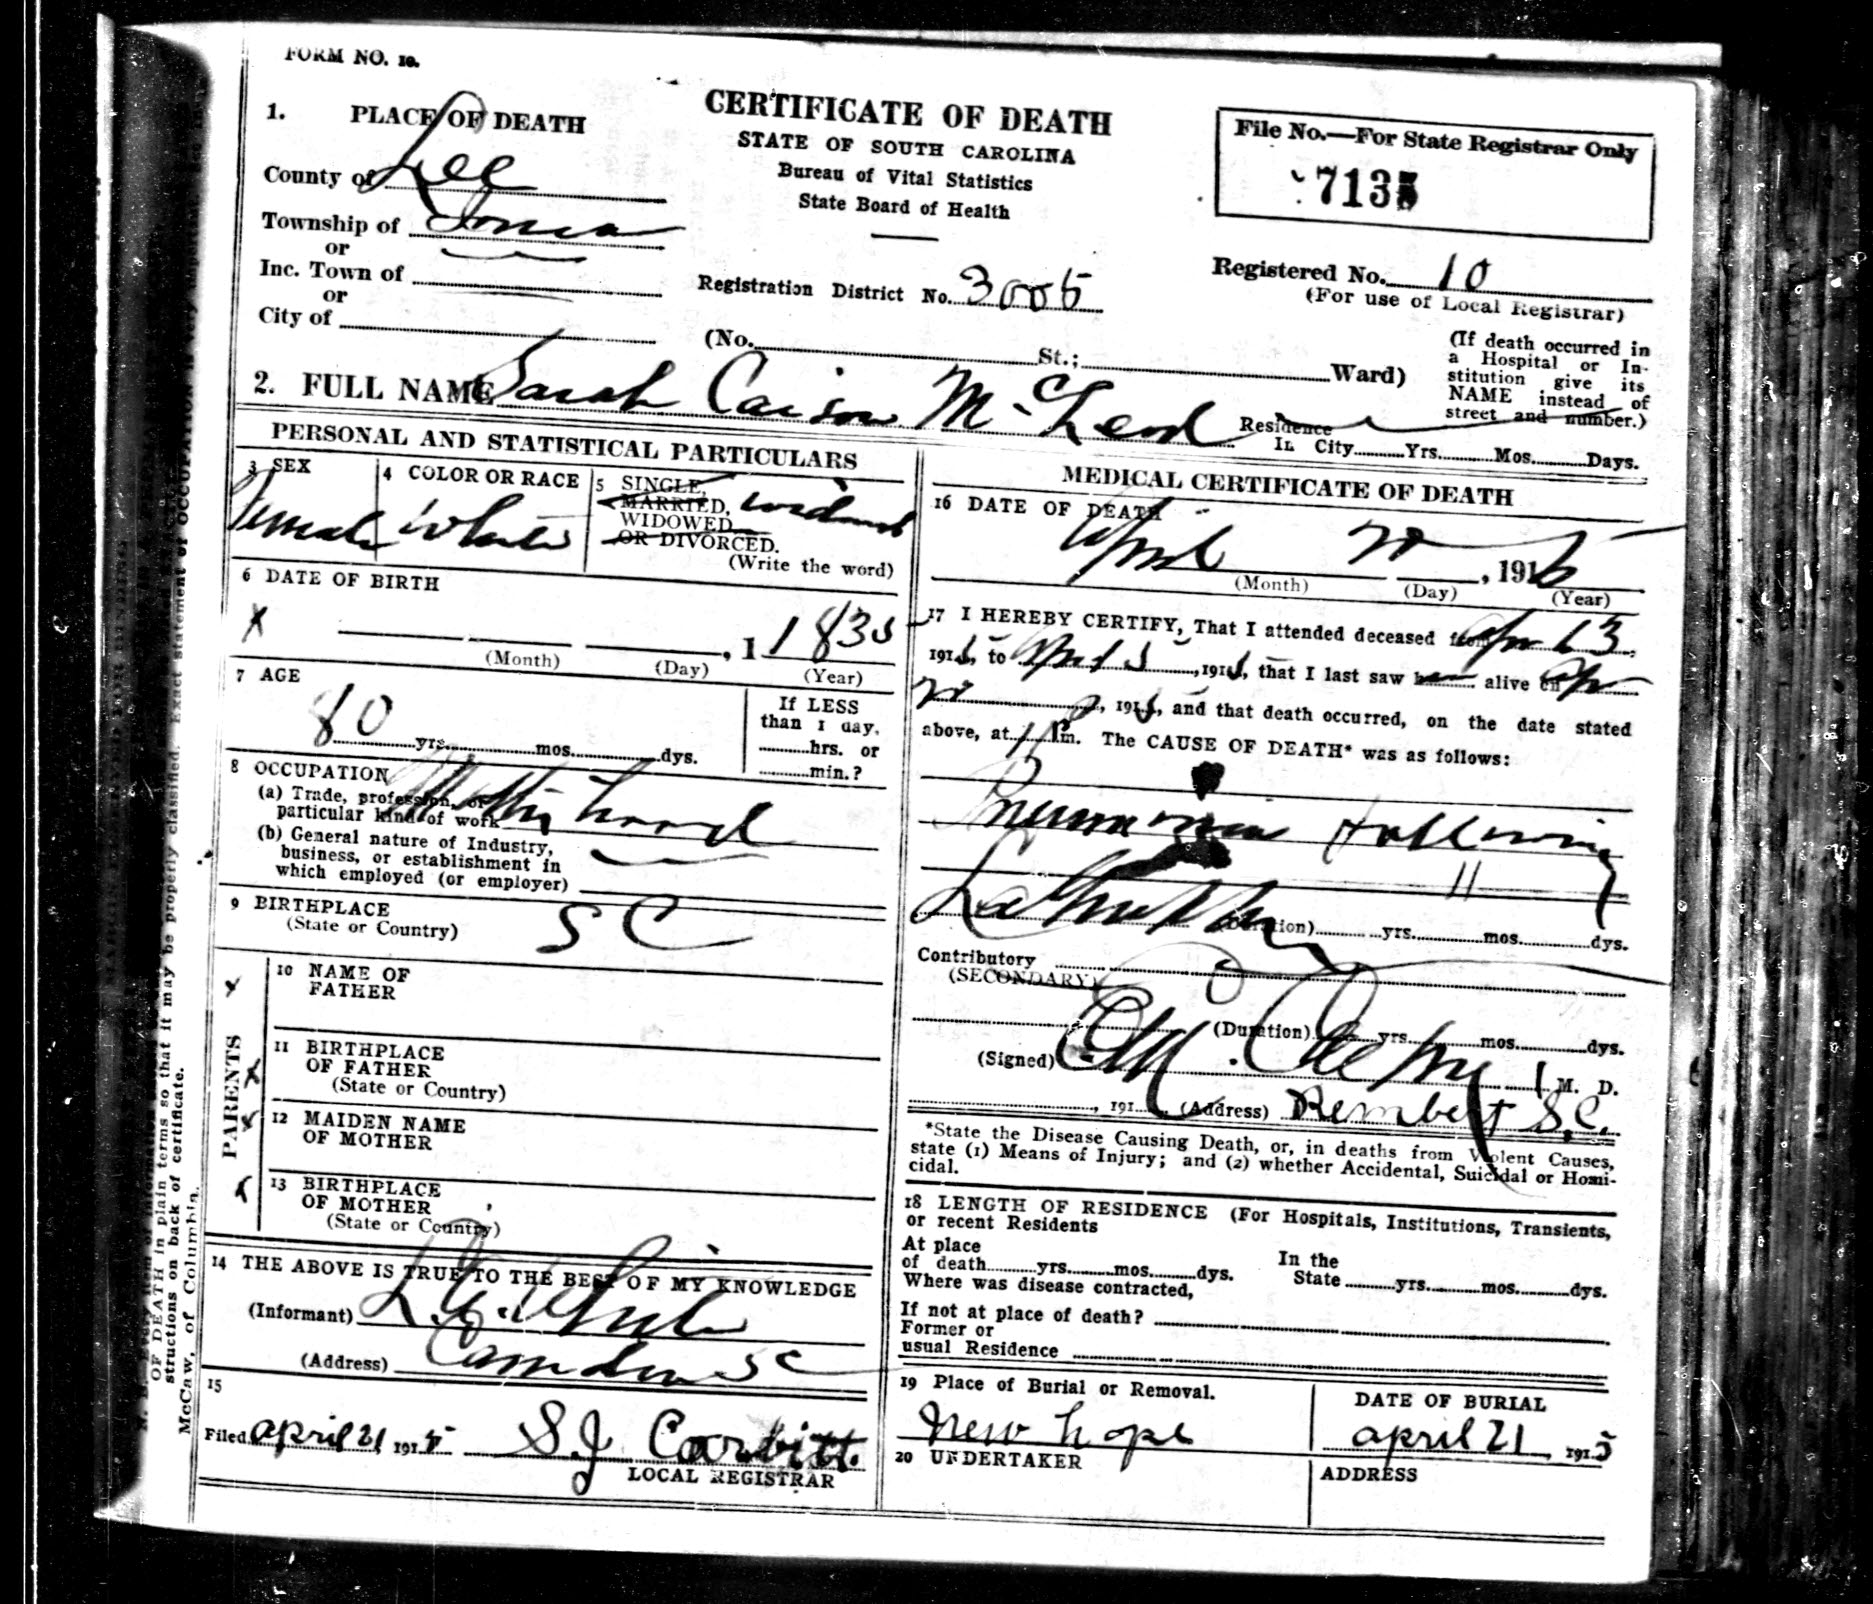 FORM NO. 10.
1. PLACE OF DEATH
County of Lee
Township of
or
Inc. Town of
or
City of
CERTIFICATE OF DEATH
STATE OF SOUTH CAROLINA
Bureau of Vital Statistics
State Board of Health
Registration District No. 3005
(No. St.; Ward)
File No.—For State Registrar Only
713
Registered No. 10
(For use of Local Registrar)
(If death occurred in
a Hospital or In-
stitution give its
NAME instead of
street and number.)
2. FULL NAME Sarah McLeod
Residence
In City Yrs. Mos. Days.
PERSONAL AND STATISTICAL PARTICULARS
3 SEX
Female
4 COLOR OR RACE
White
5 SINGLE,
MARRIED,
WIDOWED
OR DIVORCED.
(Write the word)
widowed
6 DATE OF BIRTH
x , 1 183
(Month) (Day) (Year)
7 AGE
80 yrs. mos. dys.
If LESS
than 1 day,
hrs. or
min.?
8 OCCUPATION
(a) Trade, profession, or
particular kind of work
(b) General nature of Industry,
business, or establishment in
which employed (or employer)
9 BIRTHPLACE
(State or Country)
S C
PARENTS
10 NAME OF
FATHER
x
11 BIRTHPLACE
OF FATHER
(State or Country)
x
12 MAIDEN NAME
OF MOTHER
x
13 BIRTHPLACE
OF MOTHER
(State or Country)
x
14 THE ABOVE IS TRUE TO THE BEST OF MY KNOWLEDGE
(Informant)
(Address) Camden S C
15
Filed april 21 1915 S J Corbitt.
LOCAL REGISTRAR
MEDICAL CERTIFICATE OF DEATH
16 DATE OF DEATH
April 20, 1915
(Month) (Day) (Year)
17 I HEREBY CERTIFY, That I attended deceased from Apr 13,
191 , to , 191 , that I last saw alive on Apr
20, 191 , and that death occurred, on the date stated
above, at 11 P m. The CAUSE OF DEATH* was as follows:
Pneumonia following
La Grippe
(Duration) yrs. mos. dys.
Contributory
(SECONDARY)
(Duration) yrs. mos. dys.
(Signed) M. D.
, 191 (Address) Rembert S.C.
*State the Disease Causing Death, or, in deaths from Violent Causes,
state (1) Means of Injury; and (2) whether Accidental, Suicidal or Homi-
cidal.
18 LENGTH OF RESIDENCE (For Hospitals, Institutions, Transients,
or recent Residents
At place
of death yrs. mos. dys.
In the
State yrs. mos. dys.
Where was disease contracted,
If not at place of death?
Former or
usual Residence
19 Place of Burial or Removal.
New hope
DATE OF BURIAL
april 21, 1915
20 UNDERTAKER
ADDRESS
OF DEATH in plain terms so that it may be properly classified. Exact statement of OCCUPATION is very
structions on back of certificate.
McCaw, of Columbia.